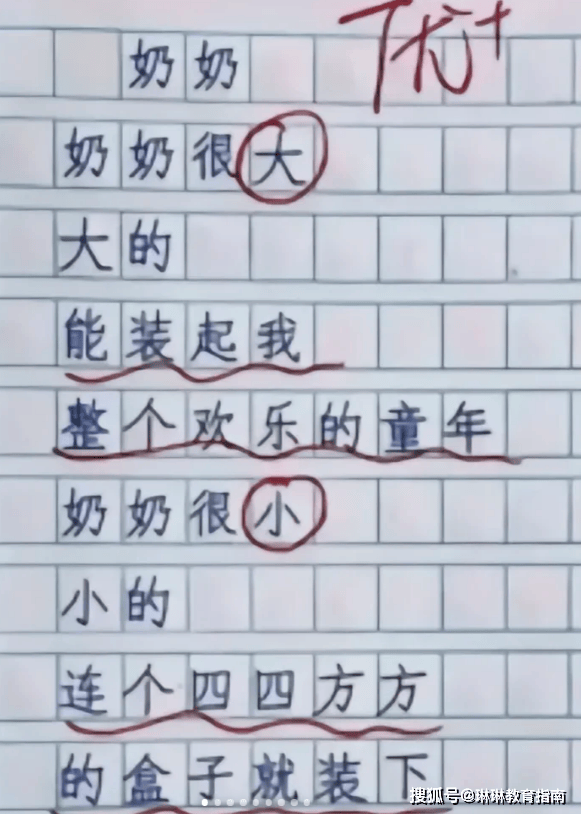 奶奶
优+
奶奶很大
大的
能装起我
整个欢乐的童年
奶奶很小
小的
连个四四方方
的盒子就装下
搜狐号@琳琳教育指南